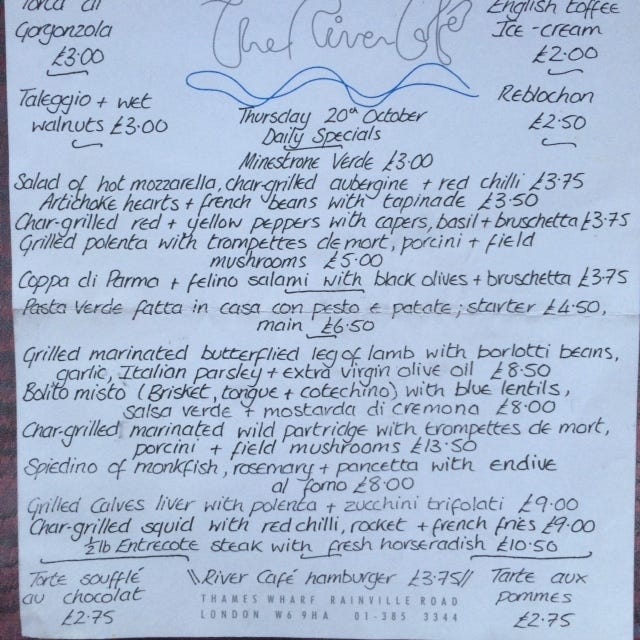 Torta di
Gorgonzola
£3.00
Taleggio + wet
walnuts £3.00
The River Café
English toffee
Ice-cream
£2.00
Reblochon
£2.50
Thursday 20th October
Daily Specials
Minestrone Verde £3.00
Salad of hot mozzarella, char-grilled aubergine + red chilli £3.75
Artichoke hearts + french beans with tapinade £3.50
Char-grilled red + yellow peppers with capers, basil + bruschetta £3.75
Grilled polenta with trompettes de mort, porcini + field
mushrooms £5.00
Coppa di Parma + felino salami with black olives + bruschetta £3.75
Pasta Verde fatta in casa con pesto e patate; starter £4.50,
main £6.50
Grilled marinated butterflied leg of lamb with borlotti beans,
garlic, Italian parsley + extra virgin olive oil £8.50
Bolito misto (Brisket, tongue + cotechino) with blue lentils,
salsa verde + mostarda di cremona £8.00
Char-grilled marinated wild partridge with trompettes de mort,
porcini + field mushrooms £13.50
Spiedino of monkfish, rosemary + pancetta with endive
al forno £8.00
Grilled Calves liver with polenta + zucchini trifolati £9.00
Char-grilled squid with red chilli, rocket + french fries £9.00
½lb Entrecote steak with fresh horseradish £10.50
Torte soufflé
au chocolat
£2.75
\\River Café hamburger £3.75//
THAMES WHARF RAINVILLE ROAD
LONDON W6 9HA 01-385 3344
Tarte aux
pommes
£2.75